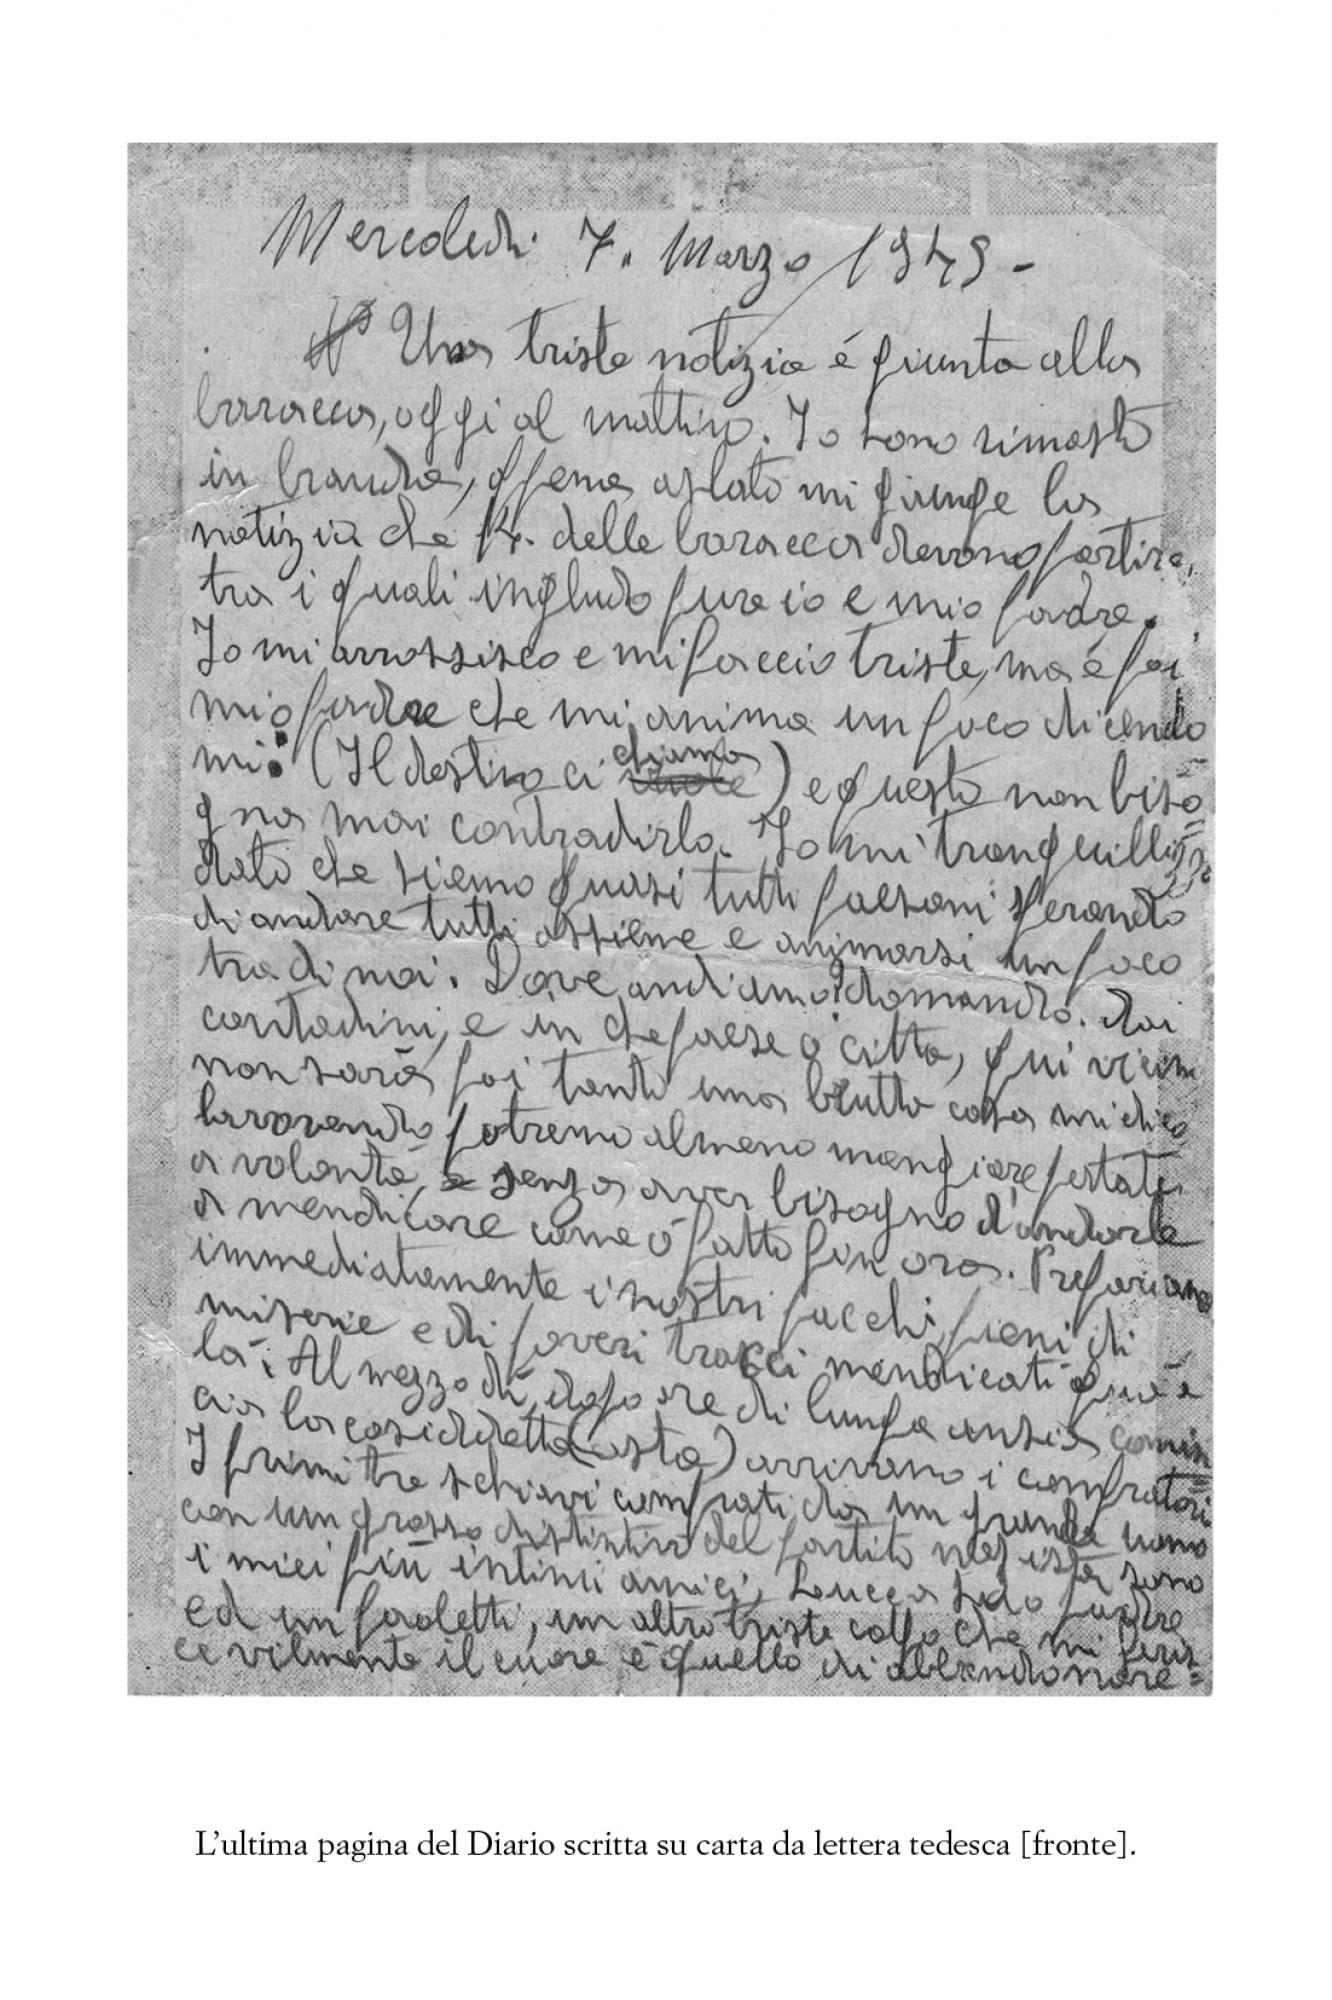 Mercoledì 7. Marzo 1945 -
Una triste notizia é giunta alla
baracca, oggi al mattino. Io sono rimasto
in branda, appena alzato mi giunge la
notizia che 14. della baracca devono partire,
tra i quali ingludo pure io e mio padre.
Io mi arrossisco e mi faccio triste, ma é poi
mio padre che mi anima un poco dicendo
mi: (Il destino ci chiama) e questo non biso
gna mai contradirlo. Io mi tranquillizzo
dato che siamo quasi tutti paesani sperando
di andare tutti assieme e animarsi un poco
tra di noi. Dove andiamo? domando. dai
contadini, e in che paese o città, qui vicini
non sarà poi tanto una brutta cosa mi dico
lavorando potremo almeno mangiare patate
a volontà, e senza aver bisogno d'andarle
a mendicare come ò fatto fin ora. Prepariamo
immediatamente i nostri sacchi pieni di
miserie e di poveri stracci mendicati quà e
là. Al mezzo dì, dopo ore di lunga ansia comin=
cia la cosiddetta (asta) arrivano i compratori
I primi tre schiavi comprati da un grande uomo
con un grosso distintivo del partito nazista sono
i miei più intimi amici, Lucca Ido padre
ed un Paoletti, un altro triste colpo che mi feris
ce vilmente il cuore é quello di abbandonare=
L'ultima pagina del Diario scritta su carta da lettera tedesca [fronte].